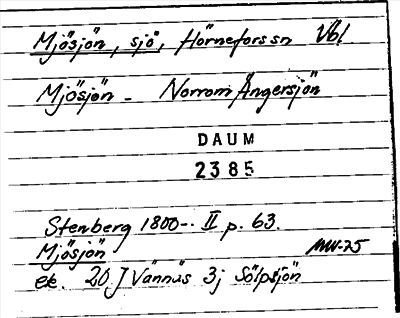 Mjösjön, sjö, Hörneforssn Vbl
Mjösjön - Norrom Ångersjön
DAUM
2385
Stenberg 1800-. II p. 63.
Mjösjön MW-75
ek. 20 J Vännäs 3j Sölpsjön